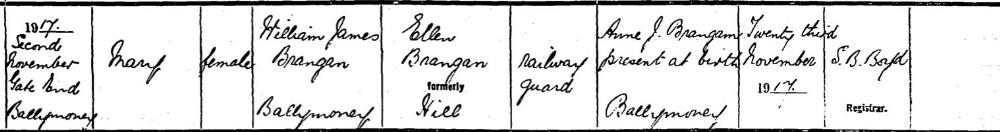 1917.
Second
November
Gate End
Ballymoney
Mary
female
William James
Brangan
Ballymoney
Ellen
Brangan
formerly
Hill
railway
guard
Anne J. Brangan
present at birth
Ballymoney
Twenty third
November
1917.
S. B. Boyd
Registrar.